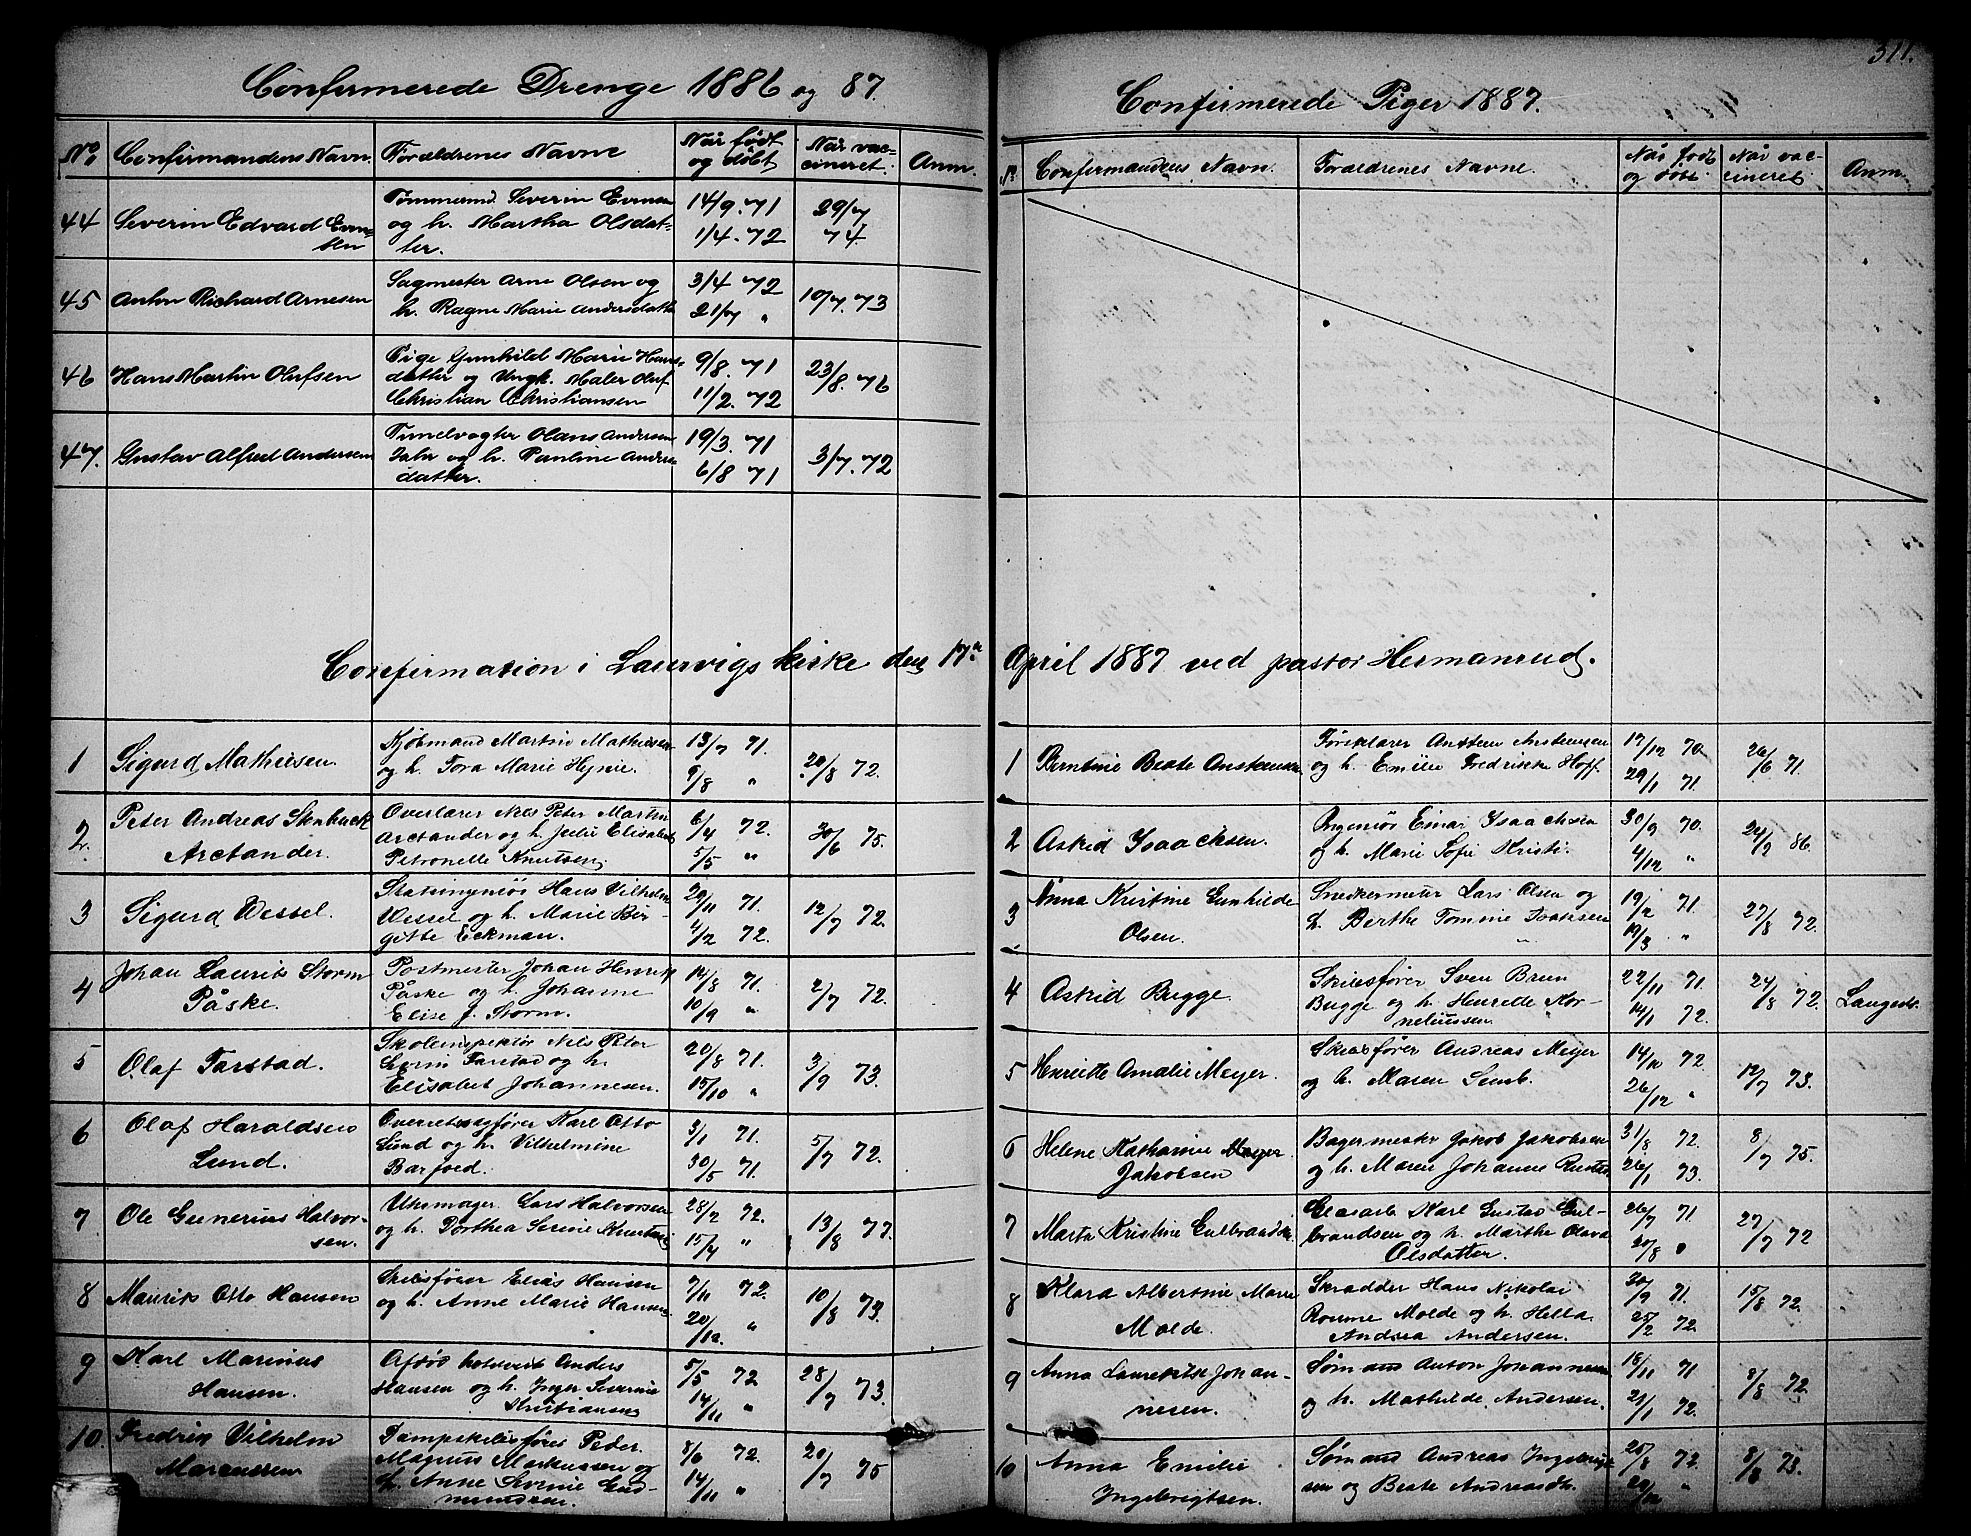 Confirmerede Drenge 1886 og 87.
No. Confirmandens Navn. Forældrenes Navne Når født og døbt Når vaccineret. Anm.
44 Severin Edvard Evensen
Tømmermd. Severin Evensen
og h. Martha Olsdat-
ter.
14/9. 71
1/4. 72
29/7
74
45 Anton Richard Arnesen
Sagmester Arne Olsen og
h. Ragne Marie Andersdatter
3/4 72
21/7 "
10/7. 73
46 Hans Martin Olufsen
Pige Gunhild Marie Hans-
datter og Ungk. Maler Oluf
Christian Christiansen
9/8. 71
11/2. 72
23/8. 76
47. Gustav Alfred Andersen
Tunelvogter Olaus Andersen
Jahr og h. Pauline Anders-
datter.
19/3. 71
6/8 71
3/7. 72
Confirmation i Laurvigs kirke den 17de
1 Sigurd Mathiesen.
Kjøbmand Martin Mathiesen
og h. Tora Marie
13/7 71.
9/8 "
20/8 72.
2. Peter Andreas Stenbuck
Arctander.
Overlærer Niels Peter Martin
Arctander og h. Julie Elisabeth
Petronelle Knutsen
6/4 72.
5/5 "
30/6 75.
3 Sigurd Wessel.
Statsingeniør Hans Vilhelm
Wessel og h. Marie Bir-
gitte Eckman.
20/11 71.
4/2 72.
12/7 72.
4 Johan Laurits Storm
Påske.
Postmester Johan Henrik
Påske og h. Johanne
Elise f. Storm.
14/8 71.
10/9 "
2/7 72.
5 Olaf Farstad.
Skoleinspektør Nils Peter
Severin Farstad og h.
Elisabet Johannesen.
20/8 71.
15/10 "
3/9 73.
6 Olaf Haraldsen
Lund.
Overretssagfører Karl Otto
Lund og h. Vilhelmine
Barfoed.
3/1 71.
30/5 71.
5/7 72.
7 Ole Gunerius Halvor-
sen.
Uhrmager. Lars Halvorsen
og h. Dorthea Serine Knutsen
28/2 72.
15/4 "
13/8 77.
8 Mauritz Otto Hansen
Skibsfører Elias Hansen
og h. Anne Marie Hansen
7/11 72.
20/12 "
10/8 73.
9 Karl Marinus
Hansen.
Afdød Anders
Hansen og h. Inger Severine
Kristiansen
5/5 72
14/11 "
28/7 73.
10. Fredrik Vilhelm
Marcussen
Dampskibsfører Peder
Magnus Markussen og
h. Anne Severine Gud-
mundsen.
3/6 72.
14/11 "
20/7 75
311.
Confirmerede Piger 1887.
No. Confirmandens Navn. Forældrenes Navne. Når født og døbt. Når vaccineret. Anm.
April 1887 ved pastor Hermanrud.
1 Berntine Beate Anstensen
Ansten Anstensen
og h. Emilie Fredrikke Hoff.
17/12 70
29/1 71.
26/6 71.
2 Astrid Isaachsen.
Ingeniør Einar Isaachsen
og h. Marie Sofie Kristi.
30/9 70.
4/12 "
24/2 86.
3 Anna Kristine Gunhilde
Olsen.
Snedkermester Lars Olsen og
h. Berthe Tomine
19/2 71.
19/3 "
27/8 72.
4 Astrid Bugge.
Skibsfører Sven Brun
Bugge og h. Henrette Kor-
neliussen
22/11 71.
14/1 72.
24/8 72.
Langest.
5 Henriette Amalie Meyer.
Skibsfører Andreas Meyer
og h. Maren Semb.
14/10 72.
26/12 "
12/7 73.
6 Helene Katharine Meyer
Jakobsen
Bagermester Jakob Jakobsen
og h. Maren Johanne
31/8 72.
26/1 73.
8/7 75.
7 Marta Kristine Gulbrandsen.
Glasarb. Karl Gustav Gul-
brandsen og h. Marthe Olava
Olsdatter.
26/7 71.
20/8 "
27/7 72
8 Klara Albertine Marie
Molde.
Skrædder Hans Nikolai
Molde og h. Hella
Andrea Andersen.
30/9 71.
25/2 72.
15/8 72.
9 Anna Johan-
nesen.
Sømand Anton Johannesen
og h. Mathilde Andersen.
18/11 71
21/1 72.
3/8 72.
10 Anna Emilie
Ingebrigtsen.
Sømand Andreas Ingebrigt-
sen og Beate Andreasdt.
25/8 72.
29/12 "
3/8 73.